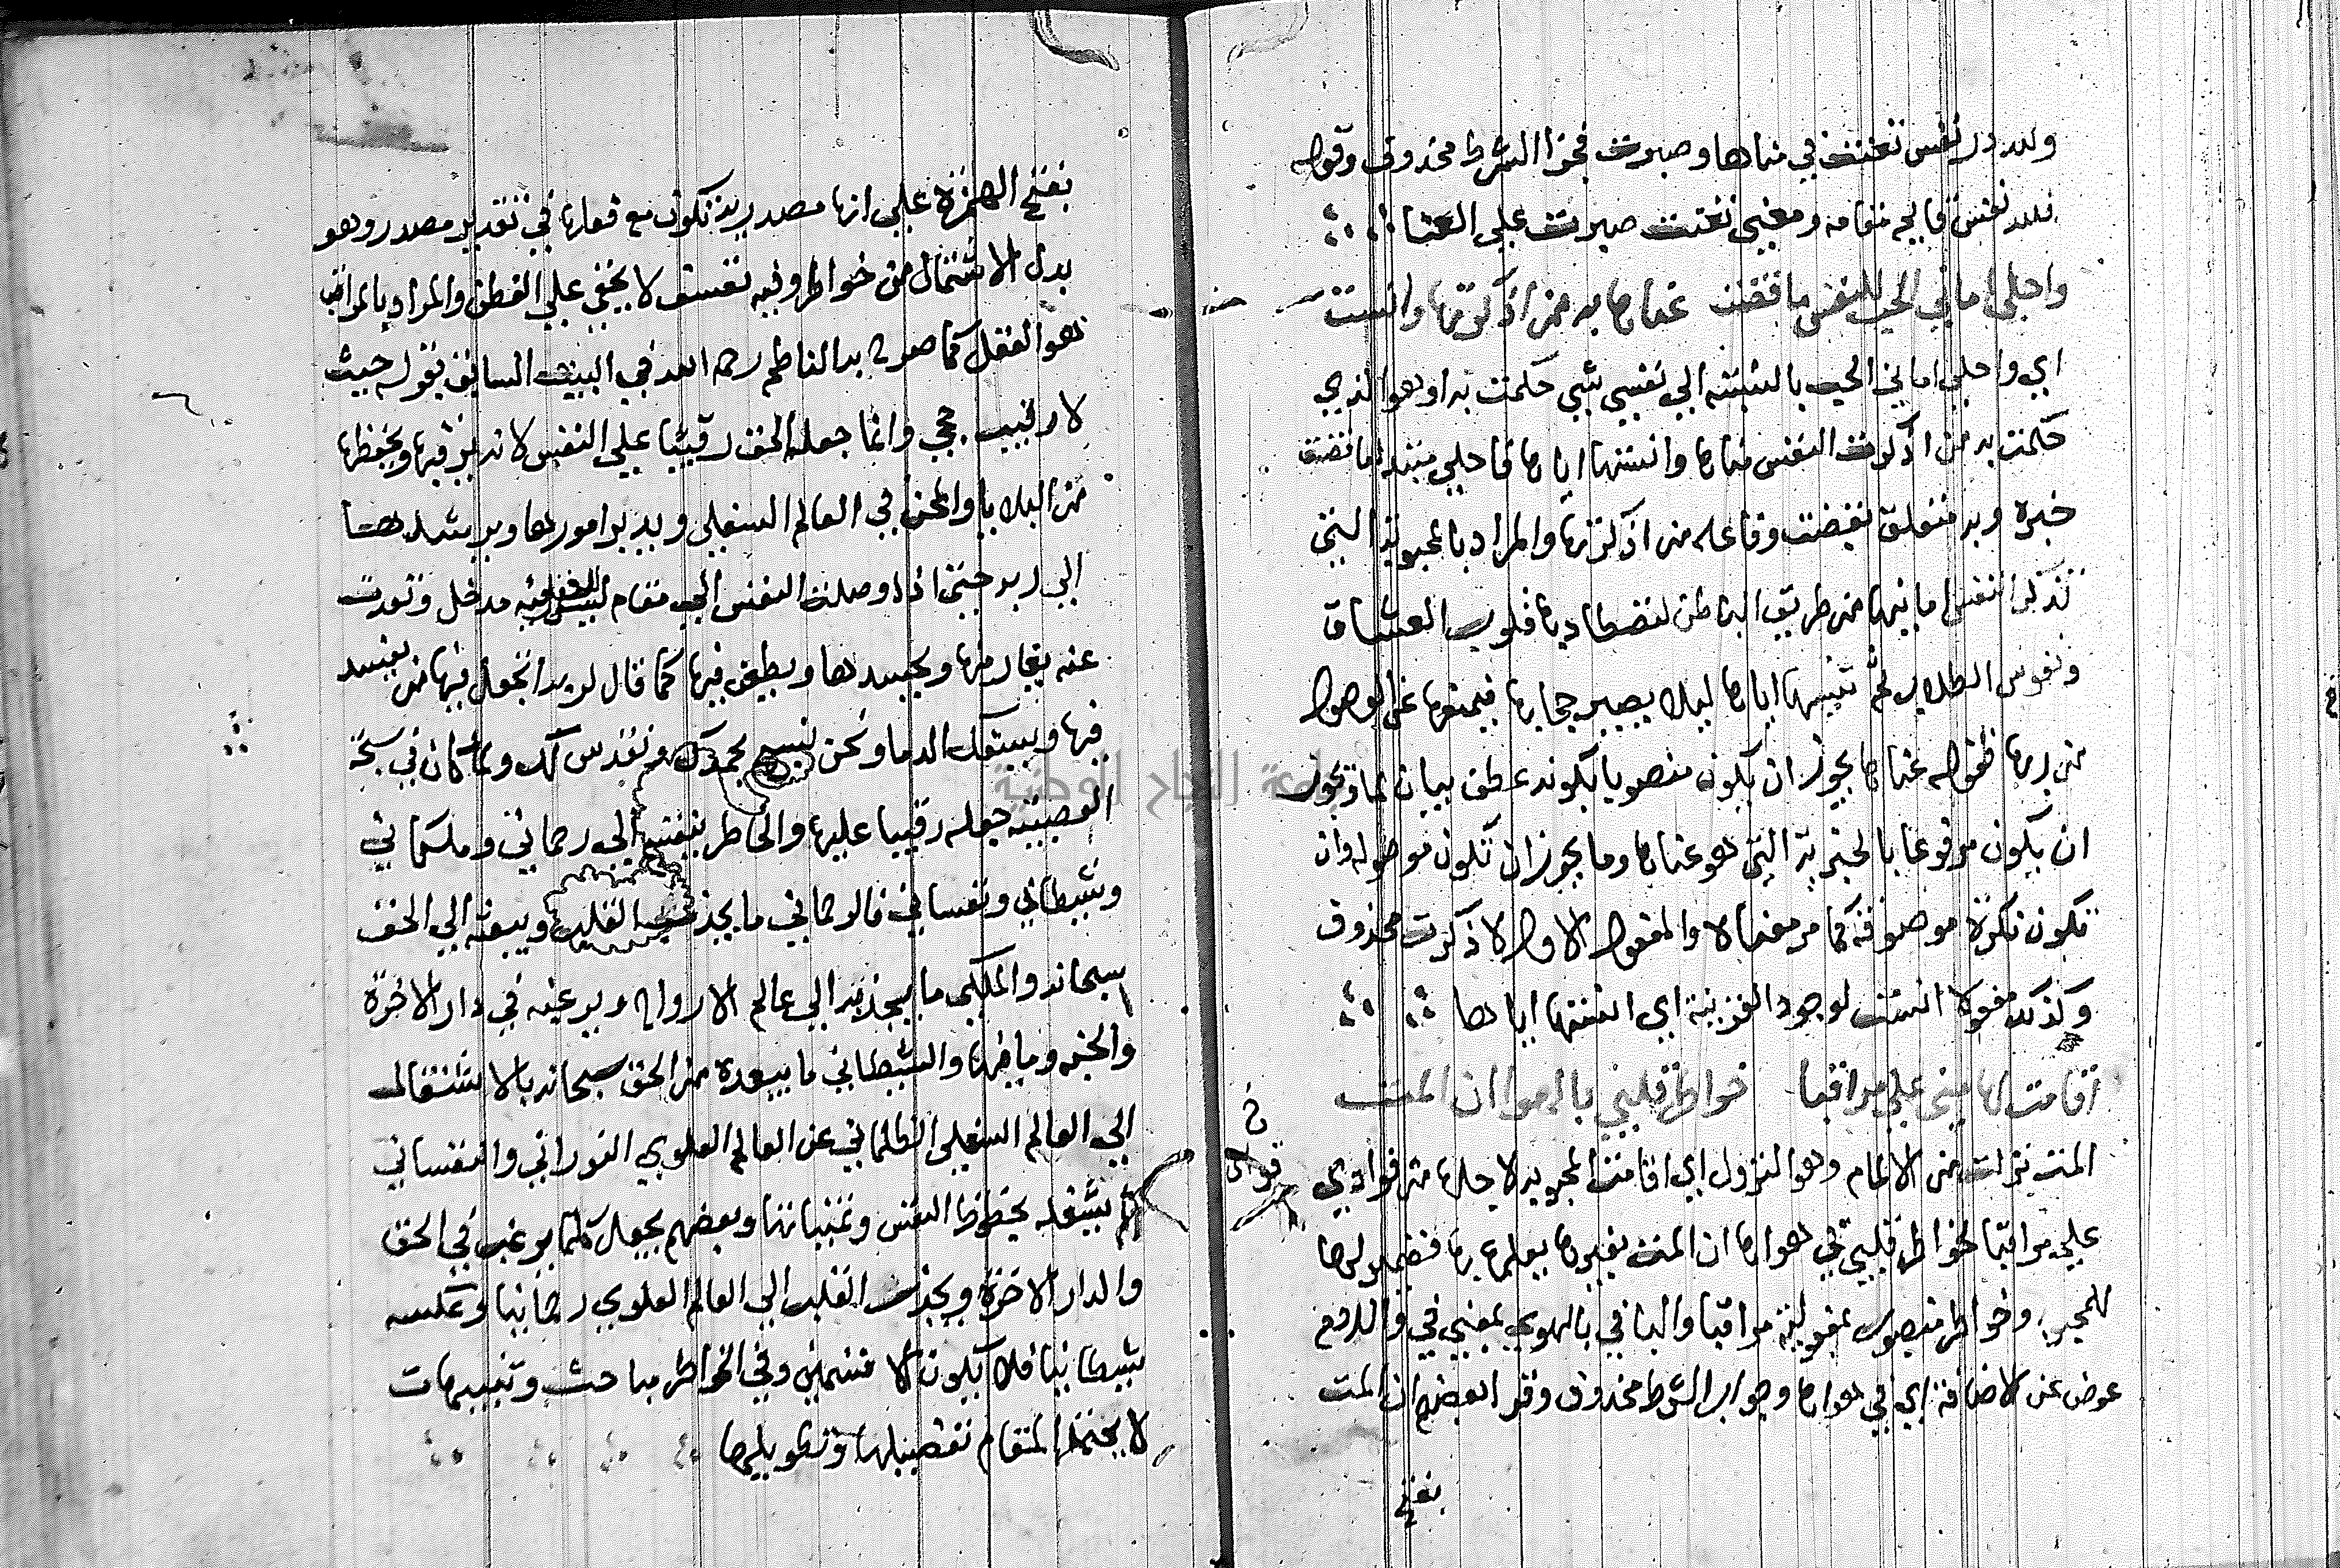 ولله در نفس تعنت في مناها وصبرت فجزا الشرط محذوف وقوله
فلله نفس قايم مقامه ومعنى تعنت صبرت على العنا
واحلى اماني الحب للنفس ما قضت عناها به من اذكرتها وانست
اي واحلى اماني الحب بالنسبة الي نفسي شي حكمت به او هو الذي
حكمت به من اذكرت النفس مناها وانستها اياها فاحلى مبتدا ما قضت
خبره وبه متعلق بقضت وفاعله من اذكرتها والمراد بالمحبوبة التي
تذكر النفس ما فيها من طريق الباطن لتصطاد بها قلوب العشاق
ونفوس الطلاب ثم تنسيها اياها ليلا يصير حجابها فيمنعها عن الوصول
من ربها فقوله عناها يجوز ان يكون منصوبا بكونه عطف بيان لما ويجوز
ان يكون مرفوعا بالخبرية التي هو عناها وما يجوز ان تكون موصولة وان
تكون نكرة موصوفة كما مر معناه والمفعول الاول لاذكرت محذوف
وكذلك مفعولا انست لوجود القرينة اي انستها اياها
اقامت لها مني علي مراقبا خواطر قلبي بالهوا ان المت
المت نزلت من الالمام وهو النزول اي اقامت المحبوبه لاجلها من فوادي
علي مراقبا لخواطر قلبي في هواها ان المت بغيرها يعلمها بها فضمير لها
للمحبوبة وخواطر منصوب بمفعولية مراقبا والبا في بالهوي بمعني في واللام
عوض عن الاضافة اي في هواها وجواب الشرط محذوف وقرا بعضهم ان المت
بفتح
بفتح الهمزة علي انها مصدرية تكون مع فعلها في تقدير مصدر وهو
بدل الاشتمال من خواطر وفيه تعسف لا يخفي علي الفطن والمراد بالمراقب
هو العقل كما صرح به الناظم رحمه الله في البيت السابق بقوله حيث
لا رقيب حجي وانما جعله الحق رقيبا علي النفس لانه يرقبها ويحفظها
من البلايا والمحن في العالم السفلي ويدبر امورها ويرشدها
الي ربه حتى اذا وصلت النفس الي مقام ليس للعقل فيه مدخل وتعدت
عنه يغار منها ويحسدها ويطعن فيها كما قال لربه اتجعل فيها من يفسد
فيها ويسفك الدما ونحن نسبح بحمدك ونقدس لك ولما كان في سجة
العصبية جعله رقيبا عليها والخاطر ينقسم الي رحماني وملكاني
وشيطاني ونفساني فالرحماني ما يجذب القلب ويبعثه الي الحق
سبحانه والملكي ما يجذبه الي عالم الارواح ويرغبه في دار الاخرة
والجنة وما فيها والشيطاني ما يبعده من الحق سبحانه بالاشتغال
الي العالم السفلي الظلماني عن العالم العلوي النوراني والنفساني
ما يشغله بحظوظ النفس وتمنياتها وبعضهم يجعل كلما يرغب في الحق
والدار الاخرة ويجذب القلب الي العالم العلوي رحمانيا وعكسه
شيطانيا فلا تكون الا قسمين وفي الخواطر مباحث وتنبيهات
لا يحتمل المقام تفصيلها وتطويلها